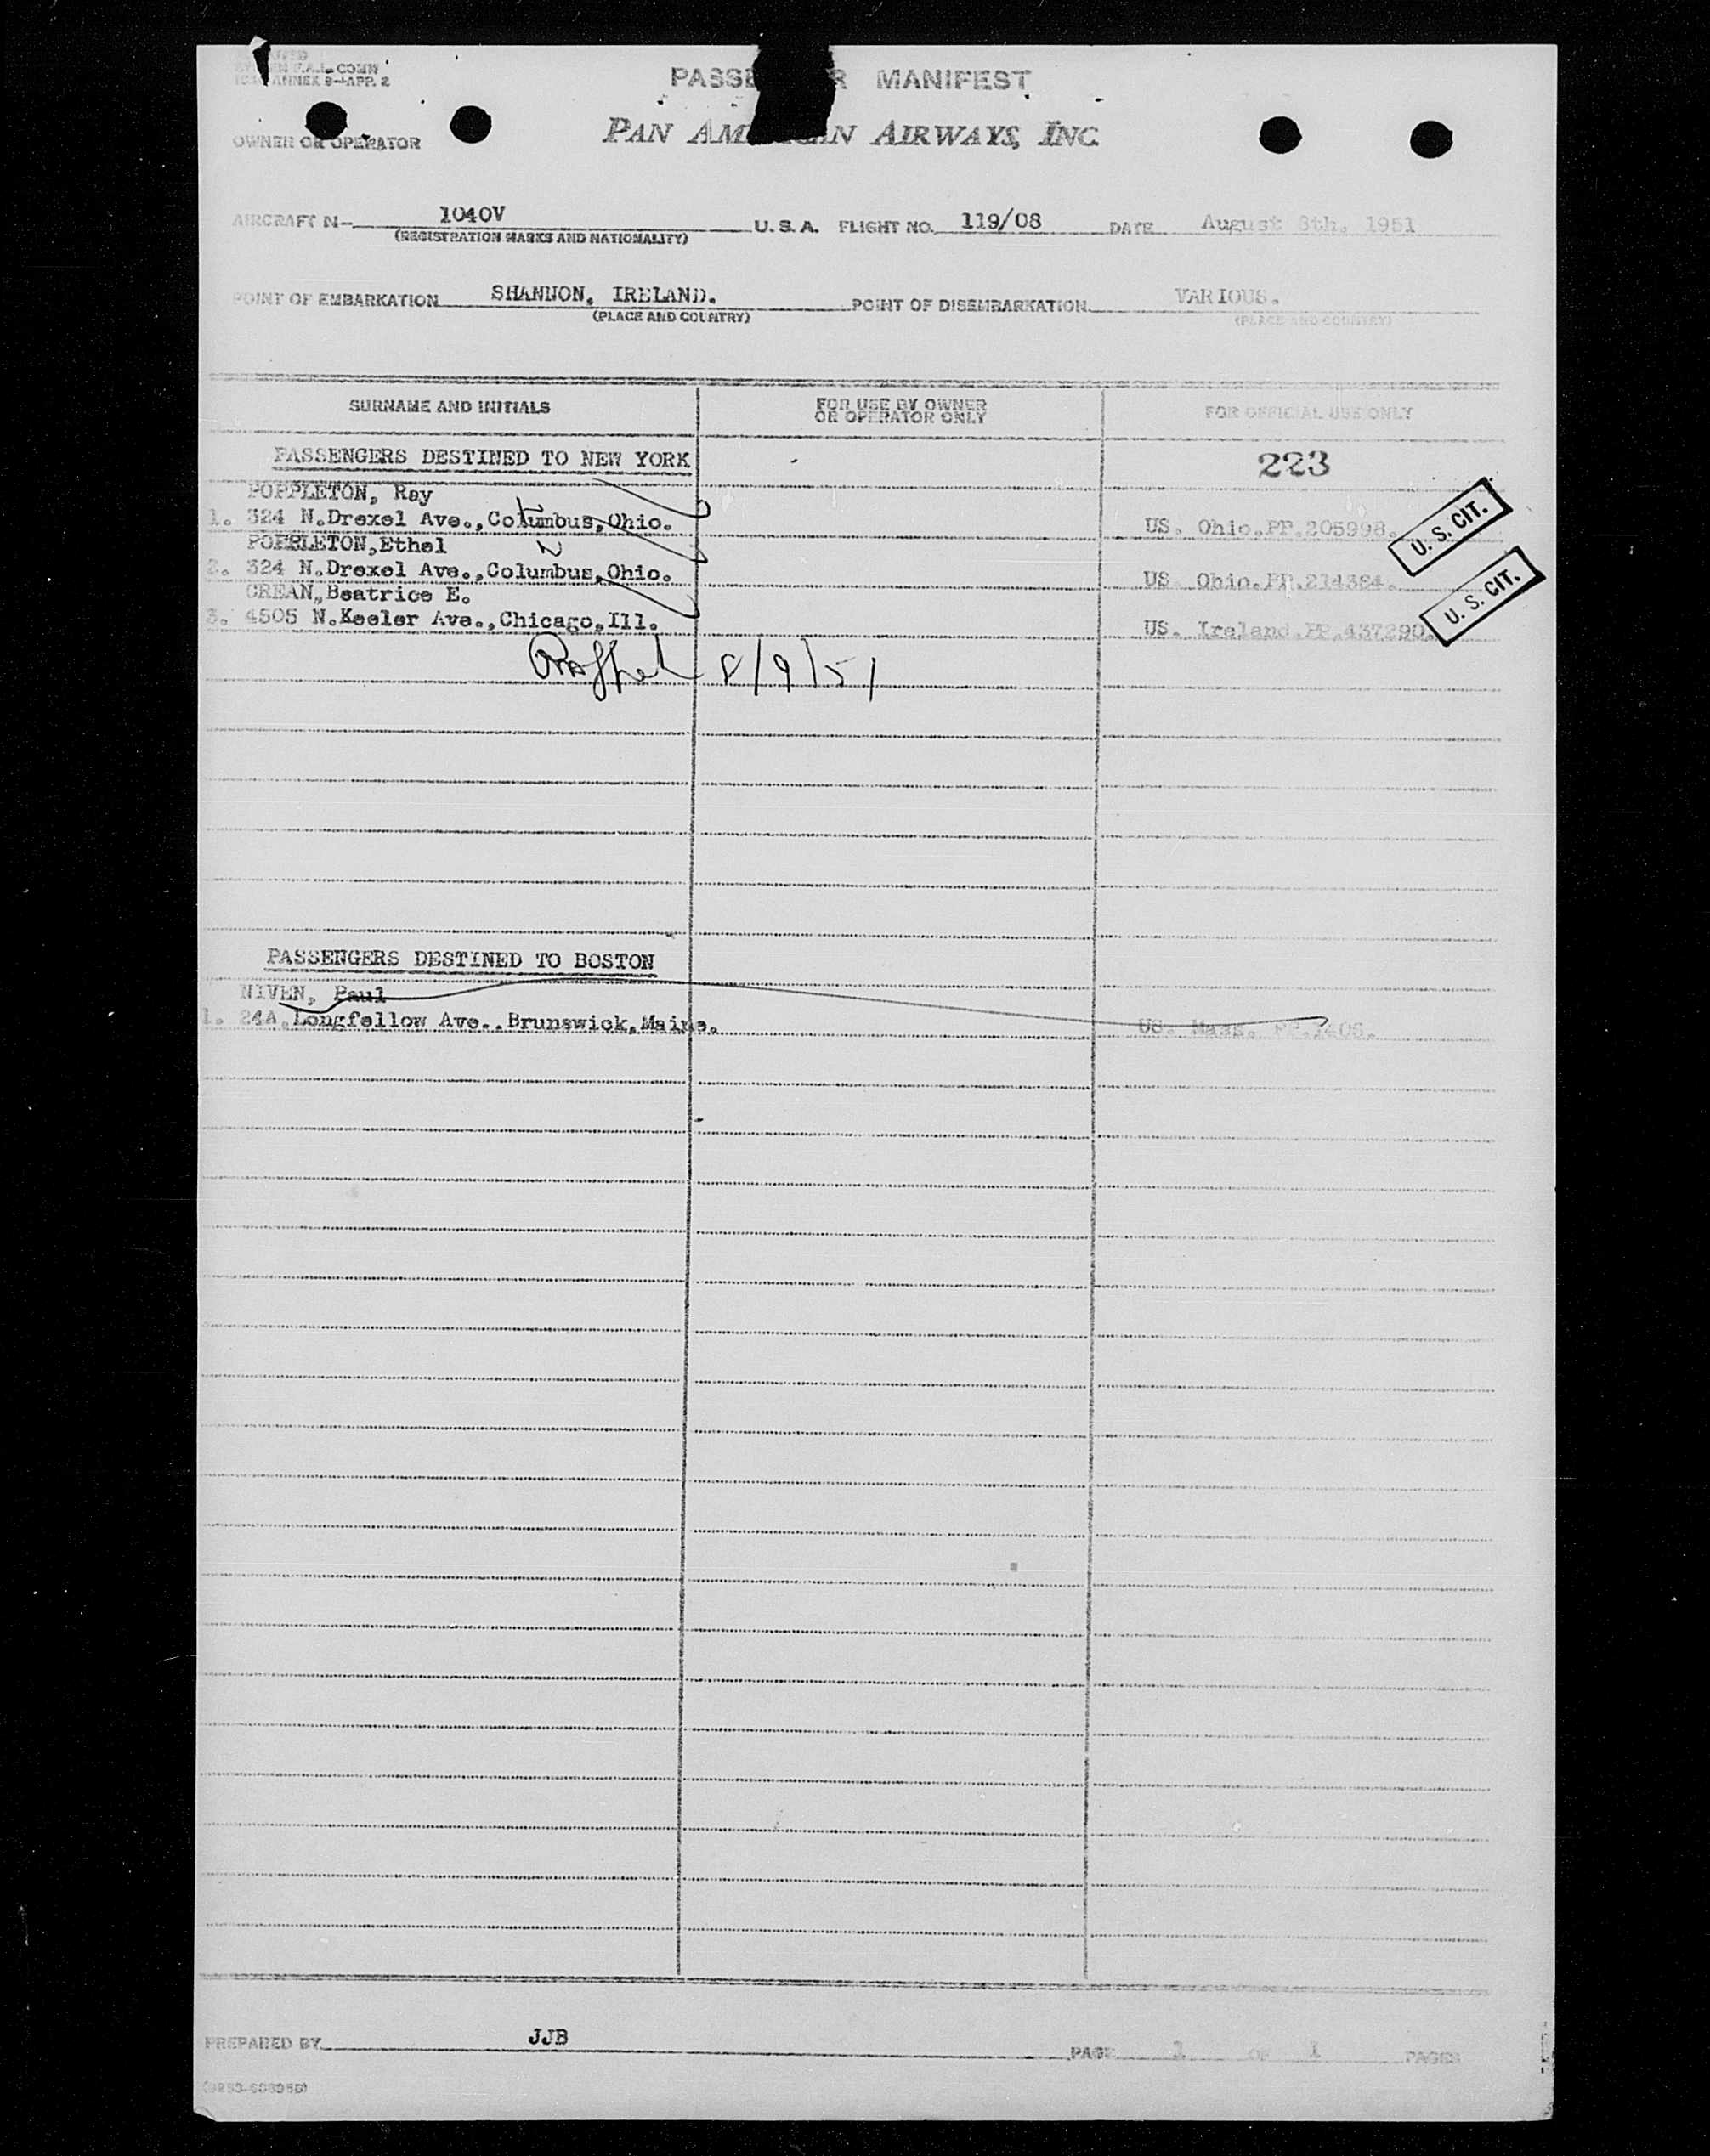 F.A.L. COMM
ANNEX 9-APP. 2
PASSE R MANIFEST
OWNER OR OPERATOR
PAN AM AN AIRWAYS, INC.
AIRCRAFT N- 1040V U. S. A. FLIGHT NO. 119/08 DATE August 8th, 1951
(REGISTRATION MARKS AND NATIONALITY)
POINT OF EMBARKATION SHANNON, IRELAND. POINT OF DISEMBARKATION VARIOUS.
(PLACE AND COUNTRY) (PLACE AND COUNTRY)
SURNAME AND INITIALS FOR USE BY OWNER OR OPERATOR ONLY FOR OFFICIAL USE ONLY
PASSENGERS DESTINED TO NEW YORK 223
POPPLETON, Ray
1. 324 N.Drexel Ave.,Columbus,Ohio. US. Ohio.PP.205998. U. S. CIT.
POPPLETON,Ethel
2. 324 N.Drexel Ave.,Columbus,Ohio. US. Ohio.PP.214384. U. S. CIT.
CREAN,Beatrice E.
3. 4505 N.Keeler Ave.,Chicago,Ill. US. Ireland.PP.437290.
8/9/51
PASSENGERS DESTINED TO BOSTON
NIVEN, Paul
1. 24A,Longfellow Ave..Brunswick,Maine. US. Mass. PP.1405.
PREPARED BY JJB PAGE 1 OF 1 PAGES